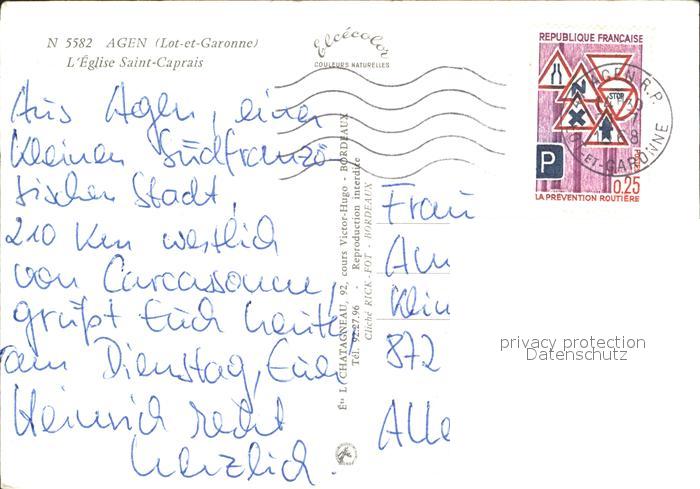 N 5582 AGEN (Lot-et-Garonne)
L'Église Saint-Caprais
Elcécolor
COULEURS NATURELLES
REPUBLIQUE FRANCAISE
STOP
P
0.25
LA PREVENTION ROUTIÈRE
AGEN R.P.
LOT-ET-GARONNE
Aus Agen, einer
kleinen südfranzö-
sischen Stadt,
210 Km westlich
von Carcassonne,
grüßt Euch heute
am Dienstag, Euer
Heinrich recht
herzlich.
Éts L. CHATAGNEAU, 92, cours Victor-Hugo - BORDEAUX
Tél. 92.27.96 - Reproduction interdite
Cliché RICK-FOT - BORDEAUX
Frau
Klein
872
Alle
privacy protection
Datenschutz